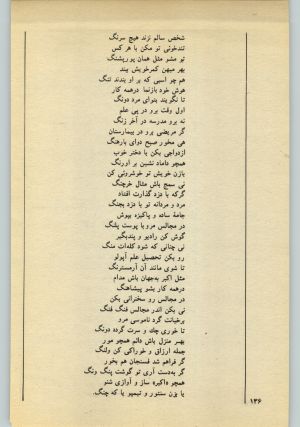 شخص سالم نزند هیچ سرنگ
تندخوئی تو مکن با هر کس
تو مشو مثل همان پورپشنگ
بهر میهن کمرخویش ببند
هم چو اسبی که بر او بندند تنگ
هوش خود بازنما درهمه کار
تا نگویند بتوای مرد دونگ
اول وقت برو در پی علم
نه برو مدرسه در آخر زنگ
گر مریضی برو در بیمارستان
هی مخور صبح دوای بارهنگ
ازدواجی بکن با دختر خوب
همچو داماد نشین بر اورنگ
بازن خویش تو خوشروئی کن
نی سمج باش مثال خرچنگ
گرکه با دزد گذارت افتاد
مرد و مردانه تو با دزد بجنگ
جامهٔ ساده و پاکیزه بپوش
در مجالس مرو با پوست پلنگ
گوش کن رادیو و پندبگیر
نی چنانی که شود کله‌ات منگ
رو بکن تحصیل علم آپولو
تا شوی مانند آن آرمسترنگ
مثل اکبر به‌جهان باش مدام
درهمه کار بشو پیشاهنگ
در مجالس رو سخنرانی بکن
نی بکن اندر مجالس فنگ فنگ
برخیانت گرد ناموسی مرو
تا خوری چك و سرت گرده دونگ
بهر منزل باش دائم همچو مور
جمله ارزاق و خوراکی کن ولنگ
گر فراهم شد فسنجان هم بخور
گر به‌دست آری تو گوشت پنگ ونگ
همچو «اکبر» ساز و آوازی شنو
یا بزن سنتور و تیمپو یا که چنگ.
۱۳۶